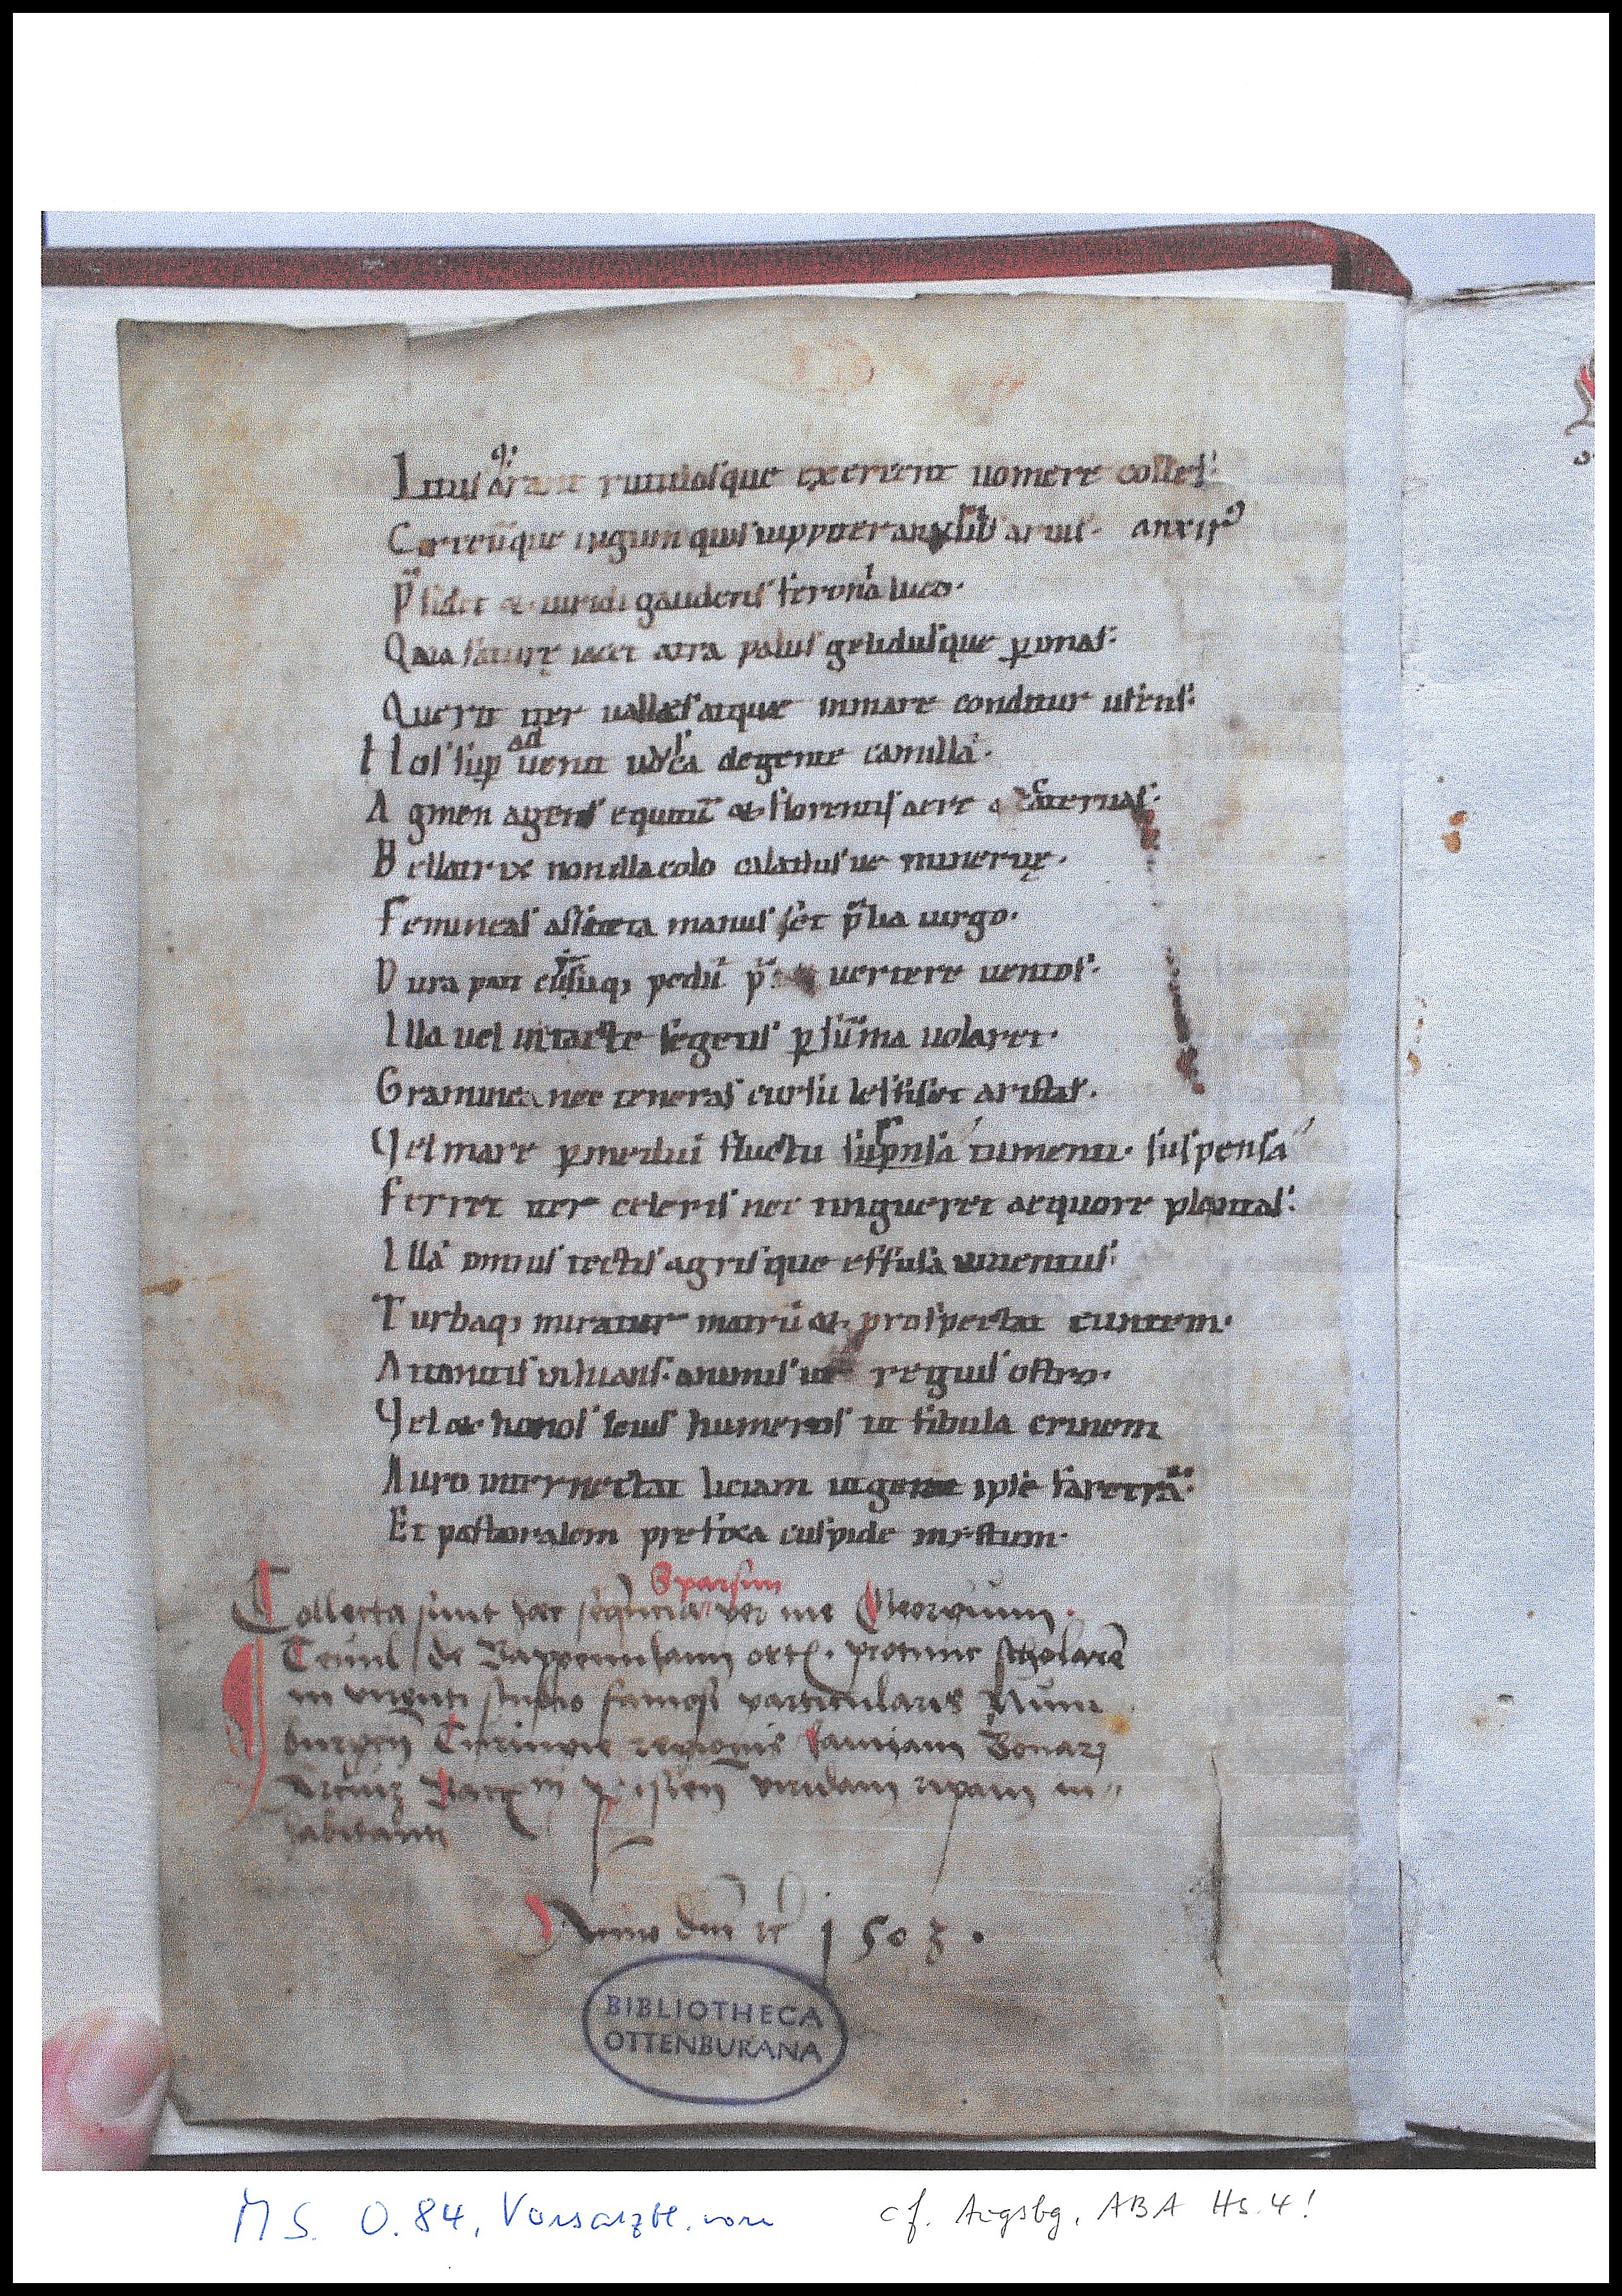 Litus arant rutulosque exercent uomere colles.
Circeūque iugum quis iuppiter anxurus aruis. anxurꝰ
P̄sidet & uiridi gaudens feronia luco.
Qua saturę iacet atra palus gelidusque p̱ imas.
Querit iter ualles atque in mare conditur ufens.
Hos sup̱ aduenit uolsca de gente camilla.
Agmen agens equitū & florentis aere cateruas.
Bellatrix non illa colo calathisue mineruę.
Femineas assueta manus set p̄lia uirgo.
Dura pati cursuq; pedū p̄ uertere uentos.
Illa uel intacte segetis p̱ sūma uolaret.
Gramina nec teneras cursu lesisset aristas.
Vel mare p̱ mediū fluctu suspensa tumenti. suspensa
Ferret iter celeris nec tingueret aequore plantas.
Illā omnis tectis agrisque effusa iuuentus.
Turbaq; miratur matrū & prospectat euntem.
Attonitis inhians animis ut regius ostro.
Vel& honos leuis humeros ut fibula crinem
Auro internectat liciam ut gerat ipse faretrā.
Et pastoralem prefixa cuspide mirtum.
Sparsim
Collecta sunt hec per me Georgium
de protunc scholarē
in studio famosi particularis Num
burgen̄ regionis
ripam in
habitanti
Anno dn̄i 1503.
BIBLIOTHECA
OTTENBURANA
MS. O.84, Vorsatzbl. vorn
cf. Augsbg, ABA Hs. 4!